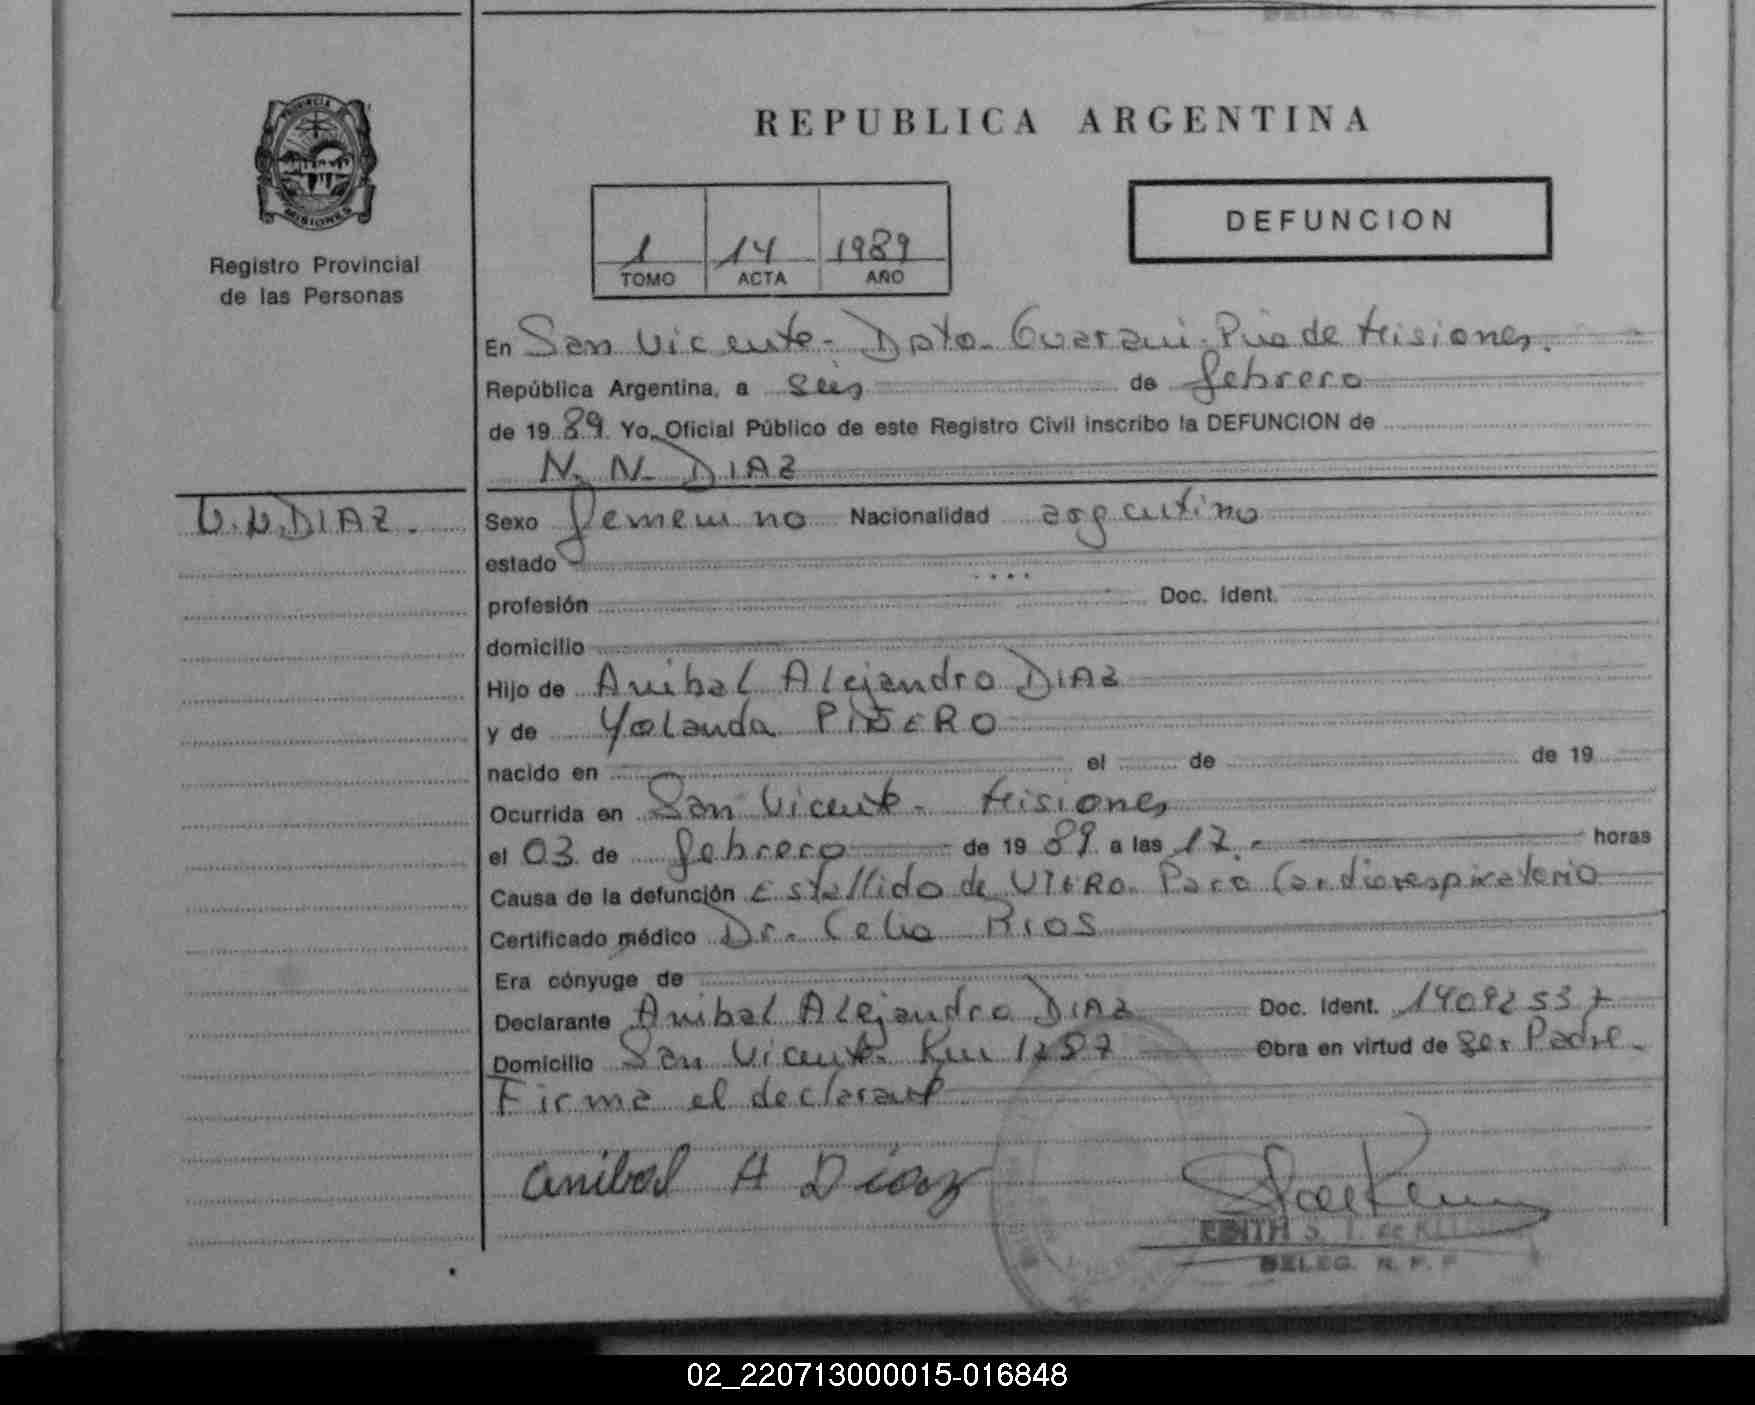 PROVINCIA
MISIONES
Registro Provincial
de las Personas
REPUBLICA ARGENTINA
1 14 1989
TOMO ACTA AÑO
DEFUNCION
En San Vicente - Dpto. Guarani - Pcia de Misiones.
República Argentina, a seis de febrero
de 19 89. Yo, Oficial Público de este Registro Civil inscribo la DEFUNCION de
N. N. DIAZ
N. N. DIAZ.
Sexo femenino Nacionalidad argentino
estado
profesión Doc. Ident.
domicilio
Hijo de Anibal Alejandro DIAZ
y de Yolanda PIÑERO
nacido en el de de 19
Ocurrida en San Vicente - Misiones
el 03 de febrero de 19 89. a las 17. - horas
Causa de la defunción Estallido de UTERO. Paro Cardiorespiratorio
Certificado médico Dr. Celia RIOS
Era cónyuge de
Declarante Anibal Alejandro DIAZ Doc. Ident. 14092537
Domicilio San Vicente - Km 1287 Obra en virtud de ser Padre.
Firma el declarante
anibal A Díaz
EDITH S. T. de
DELEG. R. P. P
02_220713000015-016848